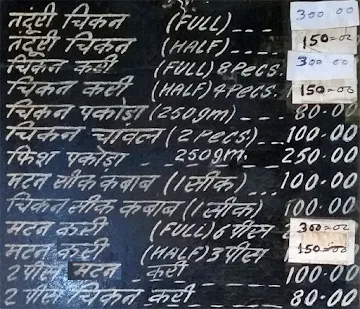 तंदूरी चिकन (FULL) -- 300 00
तंदूरी चिकन (HALF) --- 150=00
चिकन करी (FULL) 8 Pecs. 300 00
चिकन करी (HALF) 4 Pecs. 150=00
चिकन पकोडा (250gm) -- 80.00
चिकन चावल (2 Pecs) -- 100.00
फिश पकोडा -- 250gm. -- 250.00
मटन सीक कबाब (1 सीक) -- 100.00
चिकन सीक कबाब (1 सीक) 100.00
मटन करी (FULL) 6 पीस 300=00
मटन करी (HALF) 3 पीस 150=00
2 पीस मटन करी --- 100.00
2 पीस चिकन करी 80.00